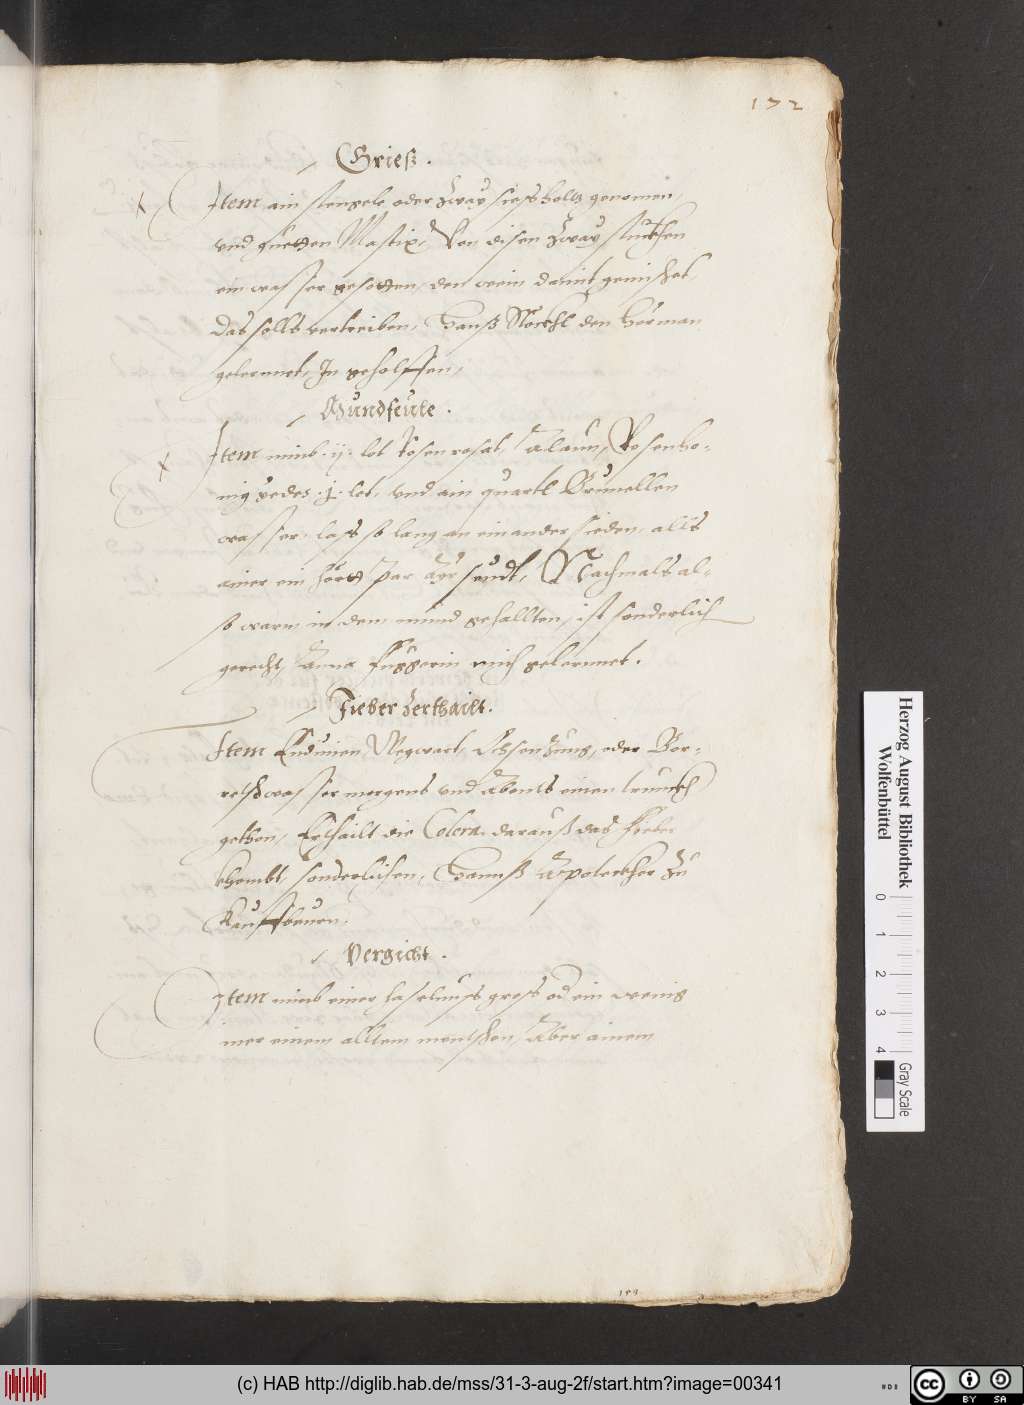 172
Grieß.
Item ain stengele oder zway siess holtz genomen,
vnd guetten Mastix, Von disen zway stuckhen
ein wasser gesotten, den wein damit gemischet,
Das solls vertreiben, Hanß den Herman
gelernnet, Im geholffen,
Mundfeüle.
Item nimb .ij. lot Rosen rosat, Alaun, Rosenho-
nig yedes .j. lot, vnd ain quartl Brunellen
wasser, lass so lang an einander sieden, alls
ainer ein hörtt par Ayr seudt, Nachmals al-
so warm in dem mund gehallten, ist sonderlich
gerecht, Anna Fuggerin mich gelernnet.
Fieber zerthailt.
Item Endiuien, Wegwart, Ochsenzung, oder Bor-
retsch wasser morgens vnd Abents einen trunckh
gethon, Erthailt die Colera, darauß das Fieber
khombt, sonderlichen, Hannß Apoteckher zu
Kauffbeurn.
Vergicht.
Item nimb einer haselnuss gross od ein wenig
mer einem alltem menschen, Aber ainem
Herzog August Bibliothek
Wolfenbüttel
0 1 2 3 4
Gray Scale
(c) HAB http://diglib.hab.de/mss/31-3-aug-2f/start.htm?image=00341
cc BY SA